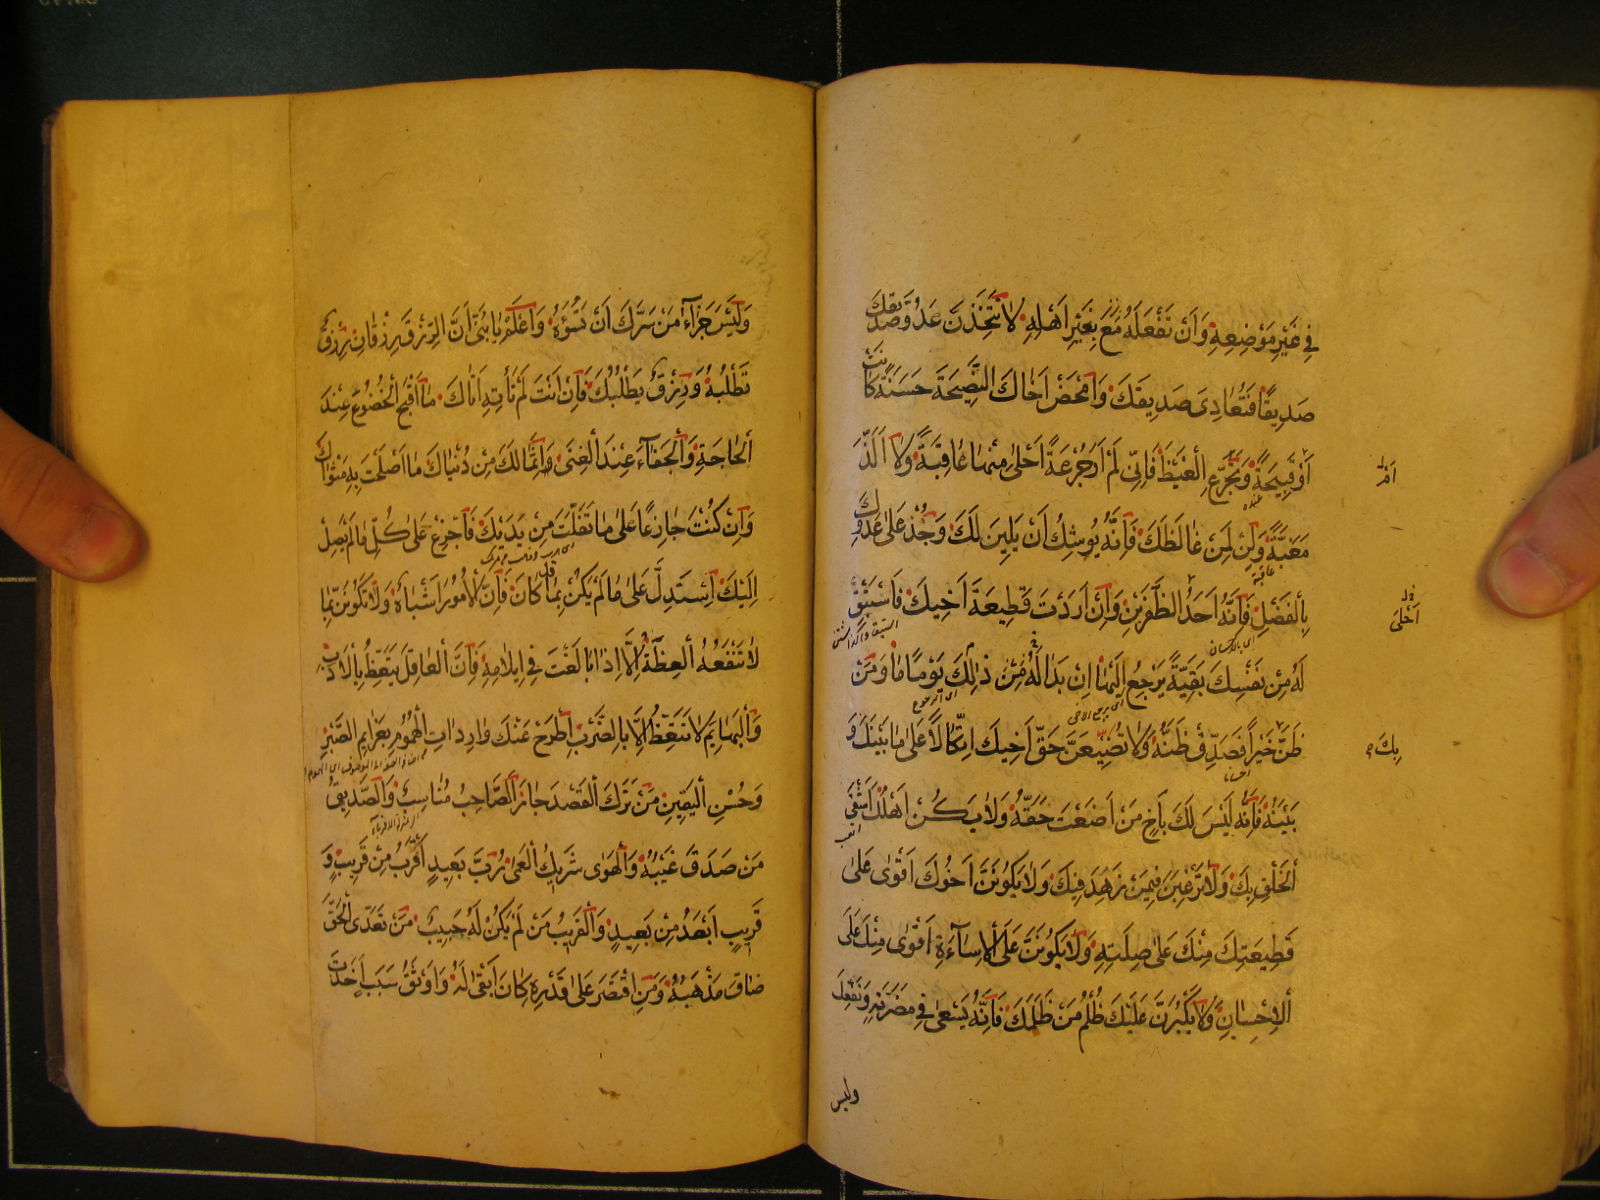 فِي غَيْرِ مَوْضِعِهِ وَاَنْ تَفْعَلَهُ مَعَ بِغَيْرِ اَهْلِهِ لَا تَتَّخِذَنَّ عَدُوَّ صَدِيقِكَ
صَدِيقًا فَتُعَادِىَ صَدِيقَكَ وَامْحَضْ اَخَاكَ النَّصِيحَةَ حَسَنَةً كَانَتْ
اَوْ قَبِيحَةً وَتَجَرَّعِ الْغَيْظَ فَاِنِّى لَمْ اَرَ جُرْعَةً اَحْلَى مِنْهَا عَاقِبَةً وَلَا اَلَذَّ
مَغَبَّةً وَلِنْ لِمَنْ غَالَظَكَ فَاِنَّهُ يُوشِكُ اَنْ يَلِينَ لَكَ وَجُدْ عَلَى عَدُوِّكَ
بِالْفَضْلِ فَاِنَّهُ اَحَدُ الظَّفَرَيْنِ وَاِنْ اَرَدْتَ قَطِيعَةَ اَخِيكَ فَاسْتَبْقِ
لَهُ مِنْ نَفْسِكَ بَقِيَّةً يَرْجِعُ اِلَيْهَا اِنْ بَدَا لَهُ مِنْ ذٰلِكَ يَوْمًا مَا وَمَنْ
ظَنَّ خَيْرًا فَصَدِّقْ ظَنَّهُ وَلَا تُضَيِّعَنَّ حَقَّ اَخِيكَ اِتِّكَالًا عَلَى مَا بَيْنَكَ وَ
بَيْنَهُ فَاِنَّهُ لَيْسَ لَكَ بِاَخٍ مَنْ اَضَعْتَ حَقَّهُ وَلَا يَكُنْ اَهْلُكَ اَشْقَى
الْخَلْقِ بِكَ وَلَا تَرْغَبَنَّ فِيمَنْ زَهِدَ فِيكَ وَلَا يَكُونَنَّ اَخُوكَ اَقْوَى عَلَى
قَطِيعَتِكَ مِنْكَ عَلَى صِلَتِهِ وَلَا يَكُونَنَّ عَلَى الْاِسَاۤءَةِ اَقْوَى مِنْكَ عَلَى
الْاِحْسَانِ وَلَا يَكْبُرَنَّ عَلَيْكَ ظُلْمُ مَنْ ظَلَمَكَ فَاِنَّهُ يَسْعَى فِي مَضَرَّتِهِ وَنَفْعِكَ
وليس
اَمَرّ
اَحْلَى
بِكَ
وَلَيْسَ جَزَاۤءُ مَنْ سَرَّكَ اَنْ تَسُوْءَهُ وَاعْلَمْ يَا بُنَىَّ اَنَّ الرِّزْقَ رِزْقَانِ رِزْقٌ
تَطْلُبُهُ وَرِزْقٌ يَطْلُبُكَ فَاِنْ اَنْتَ لَمْ تَأْتِهِ اَتَاكَ مَا اَقْبَحَ الْخُضُوعَ عِنْدَ
الْحَاجَةِ وَالْجَفَاۤءَ عِنْدَ الْغِنَى اِنَّمَا لَكَ مِنْ دُنْيَاكَ مَا اَصْلَحْتَ بِهِ مَثْوَاكَ
وَاِنْ كُنْتَ جَازِعًا عَلَى مَا تَفَلَّتَ مِنْ يَدَيْكَ فَاجْزَعْ عَلَى كُلِّ مَا لَمْ يَصِلْ
اِلَيْكَ اِسْتَدِلَّ عَلَى مَا لَمْ يَكُنْ بِمَا قَدْ كَانَ فَاِنَّ الْاُمُورَ اَشْبَاهٌ وَلَا تَكُونَنَّ مِمَّنْ
لَا تَنْفَعُهُ الْعِظَةُ اِلَّا اِذَا بَالَغْتَ فِي اِيلَامِهِ فَاِنَّ الْعَاقِلَ يَتَّعِظُ بِالْاَدَبِ
وَالْبَهَايِمَ لَا تَتَّعِظُ اِلَّا بِالضَّرْبِ اِطْرَحْ عَنْكَ وَارِدَاتِ الْهُمُومِ بِعَزَايِمِ الصَّبْرِ
وَحُسْنِ الْيَقِينِ مَنْ تَرَكَ الْقَصْدَ جَارَ الصَّاحِبُ مُنَاسِبٌ وَالصَّدِيقُ
مَنْ صَدَقَ غَيْبُهُ وَالْهَوَى شَرِيكُ الْعَمَى رُبَّ بَعِيدٍ اَقْرَبُ مِنْ قَرِيبٍ وَ
قَرِيبٍ اَبْعَدُ مِنْ بَعِيدٍ وَالْغَرِيبُ مَنْ لَمْ يَكُنْ لَهُ حَبِيبٌ مَنْ تَعَدَّى الْحَقَّ
ضَاقَ مَذْهَبُهُ وَمَنِ اقْتَصَرَ عَلَى قَدْرِهِ كَانَ اَبْقَى لَهُ وَاَوْثَقُ سَبَبٍ اَخَذْتَ